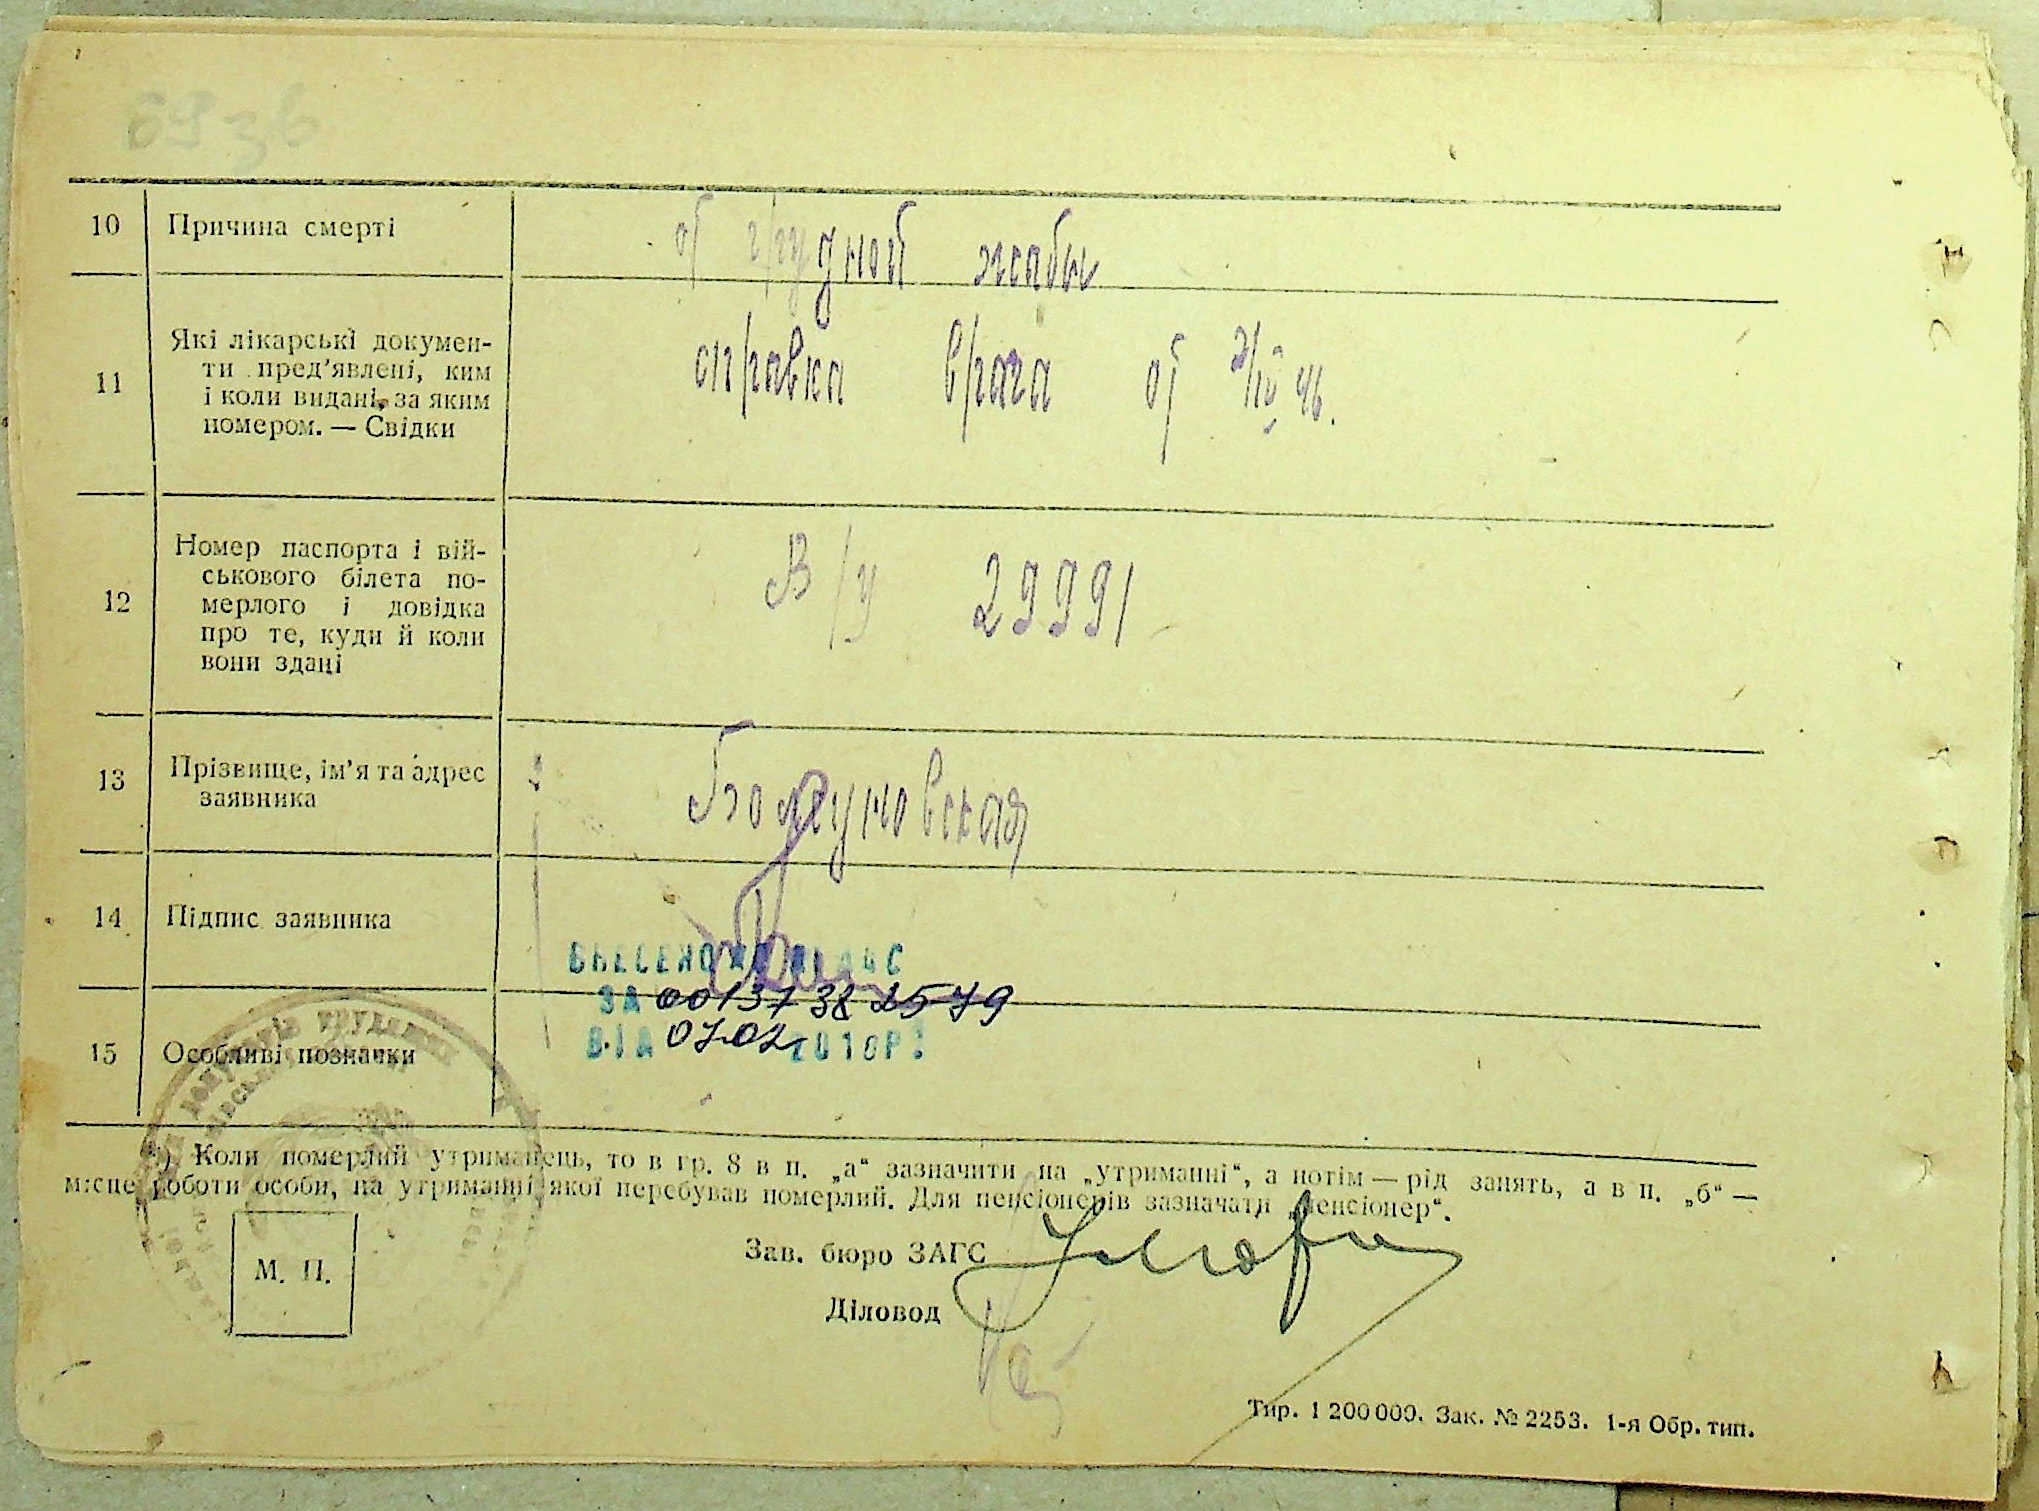 10 Причина смерті от грудной жабы
11 Які лікарські докумен-
ти пред’явлені, ким
і коли видані, за яким
номером. — Свідки
справка врача от
12 Номер паспорта і вій-
ськового білета по-
мерлого і довідка
про те, куди й коли
вони здані
В/у 29991
13 Прізвище, ім’я та адрес
заявника
14 Підпис заявника
ВНЕСЕНО
ЗА 00137382579
ВІД 07.02 2018Р.
15 Особливі позначки
*) Коли померлий утриманець, то в гр. 8 в п. „а“ зазначити на „утриманні“, а потім — рід занять, а в п. „б“ —
місце роботи особи, на утриманні якої перебував померлий. Для пенсіонерів зазначати „пенсіонер“.
М. П.
Зав. бюро ЗАГС
Діловод
Тир. 1 200 000. Зак. № 2253. 1-я Обр. тип.